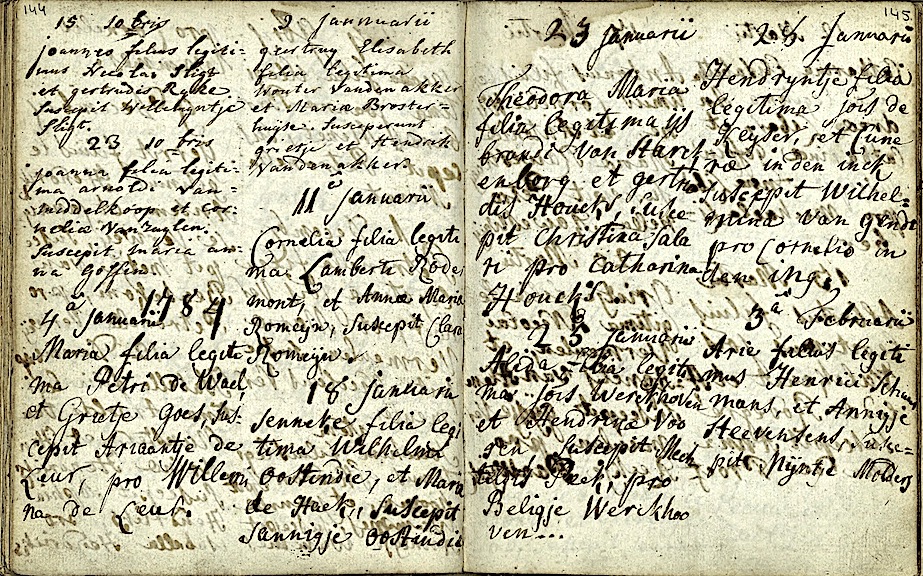 144
15 10 bris
joannes filius legiti-
mus Nicolai Sligt
et gertrudis Rycke
Suscepit Wellebyntje
Sligt.
23 10 bris
joanna filia legiti-
ma arnoldi van
middelkoop et Cor-
nelia Van Zuylen.
Suscepit maria an-
na Goffin
1784
4 a Januarii
Maria filia legiti
ma Petri de Wael,
et Grietje Goes, Sus-
cepit Ariaantje de
Leur, pro Willemi
na de Leur.
9 Jannuarii
geertruy Elisabeth
filia legitima
Wouter Vanden akker
et Maria Broster-
huyse. Susceperunt
grietje et Hendrik
Vanden akker
11 a Januarii
Cornelia filia legiti
ma Lamberti Rode
mont, et Annæ Maria
Romeijn, Suscepit Clara
Romeijn
18 januarii
Jenneke filia legi
tima Wilhelmi
Oostindie, et Maria
de Haek, Suscepit
Jannigje Oostindie
145
23 Januarii
Theodora Maria
filia legitima ijs
brandi Van Starck
enborg et gertru
dis Houcks, Susce
pit Christina Sala
ri pro Catharina
Houcks
25 a Januarii
Alida filia legiti
ma Jois Werckhoven
et Hendrina Voo
gen Suscepit Mech
teldis Peek, pro
Beligje Werckhoo
ven...
25 Januarii
Hendryntje filia
legitima Jois de
Keyser, et Cune
ræ in den inck
Suscepit Wilhel-
mina van
pro Cornelio in
den ing.
3 a Februarii
Arie filius legiti
mus Henrici Schuu
mans, et Annigje
Steevensens, Susce-
pit Mijntje Molders